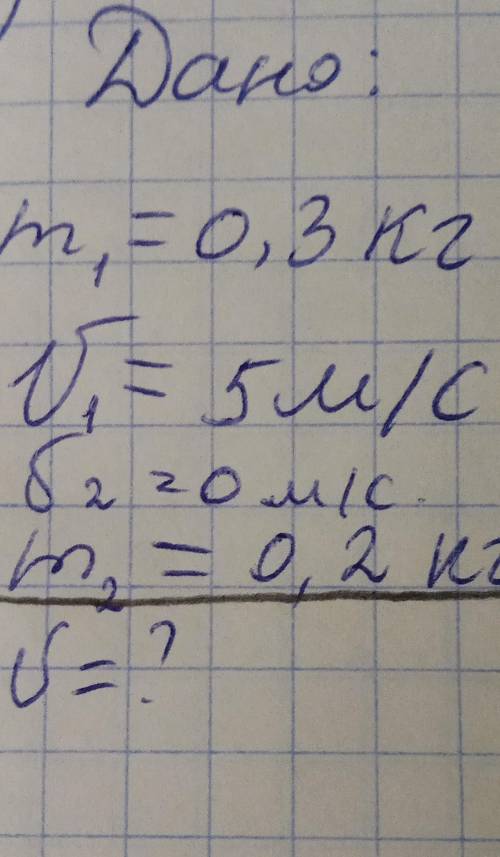 Дано:
m₁ = 0,3 кг
υ₁ = 5 м/с
υ₂ = 0 м/с.
m₂ = 0,2 кг
υ = ?